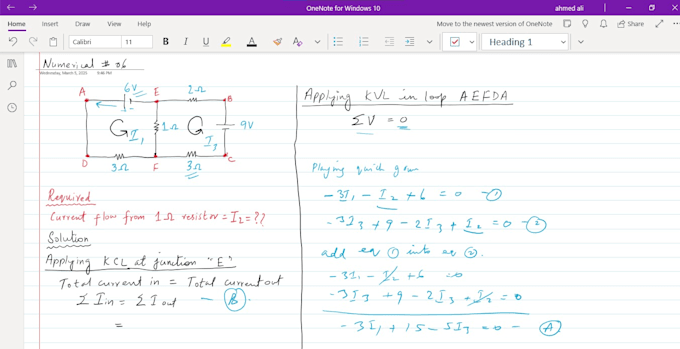 OneNote for Windows 10
ahmed ali
Move to the newest version of OneNote
Share
Calibri
11
B I U A
Heading 1
Numerical # 06
Wednesday, March 5, 2025 9:46 PM
A 6V E 2Ω B
I1 1Ω I3 9V
D 3Ω F 3Ω C
Required
Current flow from 1Ω resistor = I2 = ??
Solution
Applying KCL at junction "E"
Total current in = Total current out
Σ Iin = Σ I out — B.
=
Applying KVL in loop AEFDA
ΣV = 0
quick
-3I1 - I2 + 6 = 0 — 1
-3I3 + 9 - 2I3 + I2 = 0 — 2
add eq 1 into eq 2.
-3I1 - I2 + 6 = 0
-3I3 + 9 - 2I3 + I2 = 0
-3I1 + 15 - 5I3 = 0 — A